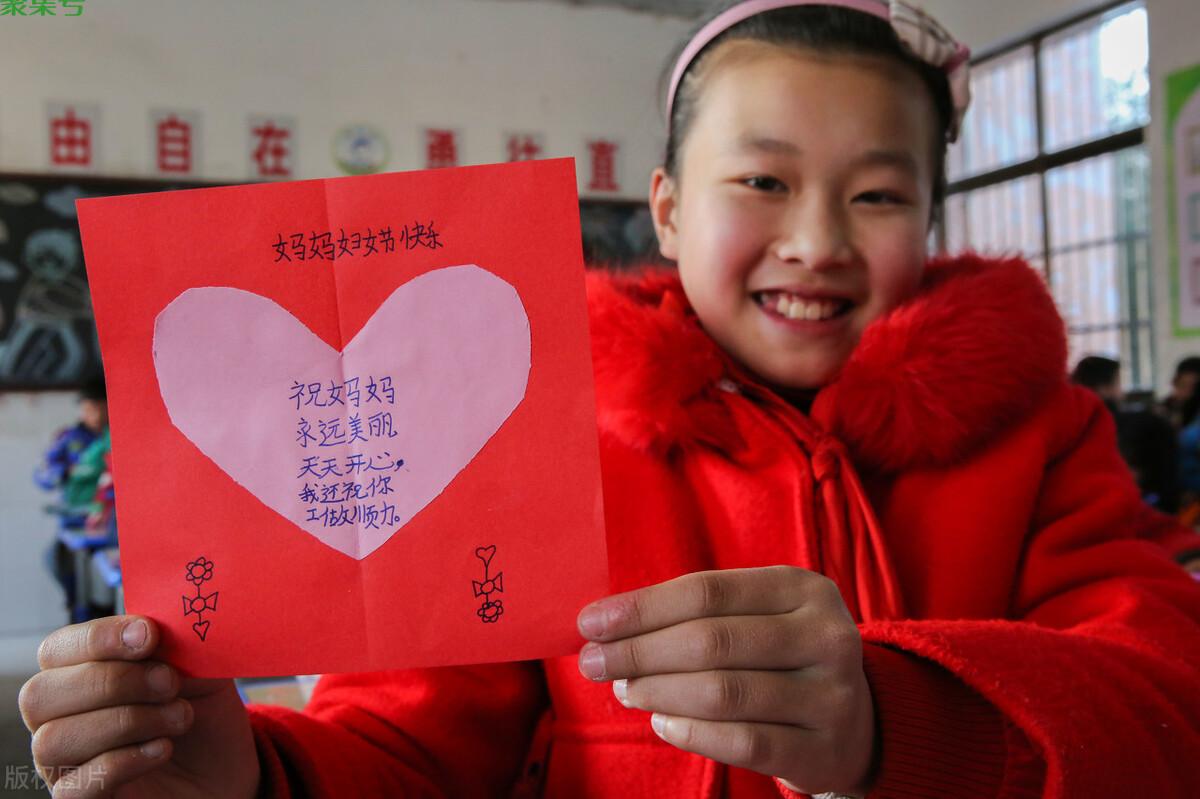 聚集号
由自在 勇往直
妈妈妇女节快乐
祝妈妈
永远美丽
天天开心，
我还祝你
工做顺力。
版权图片